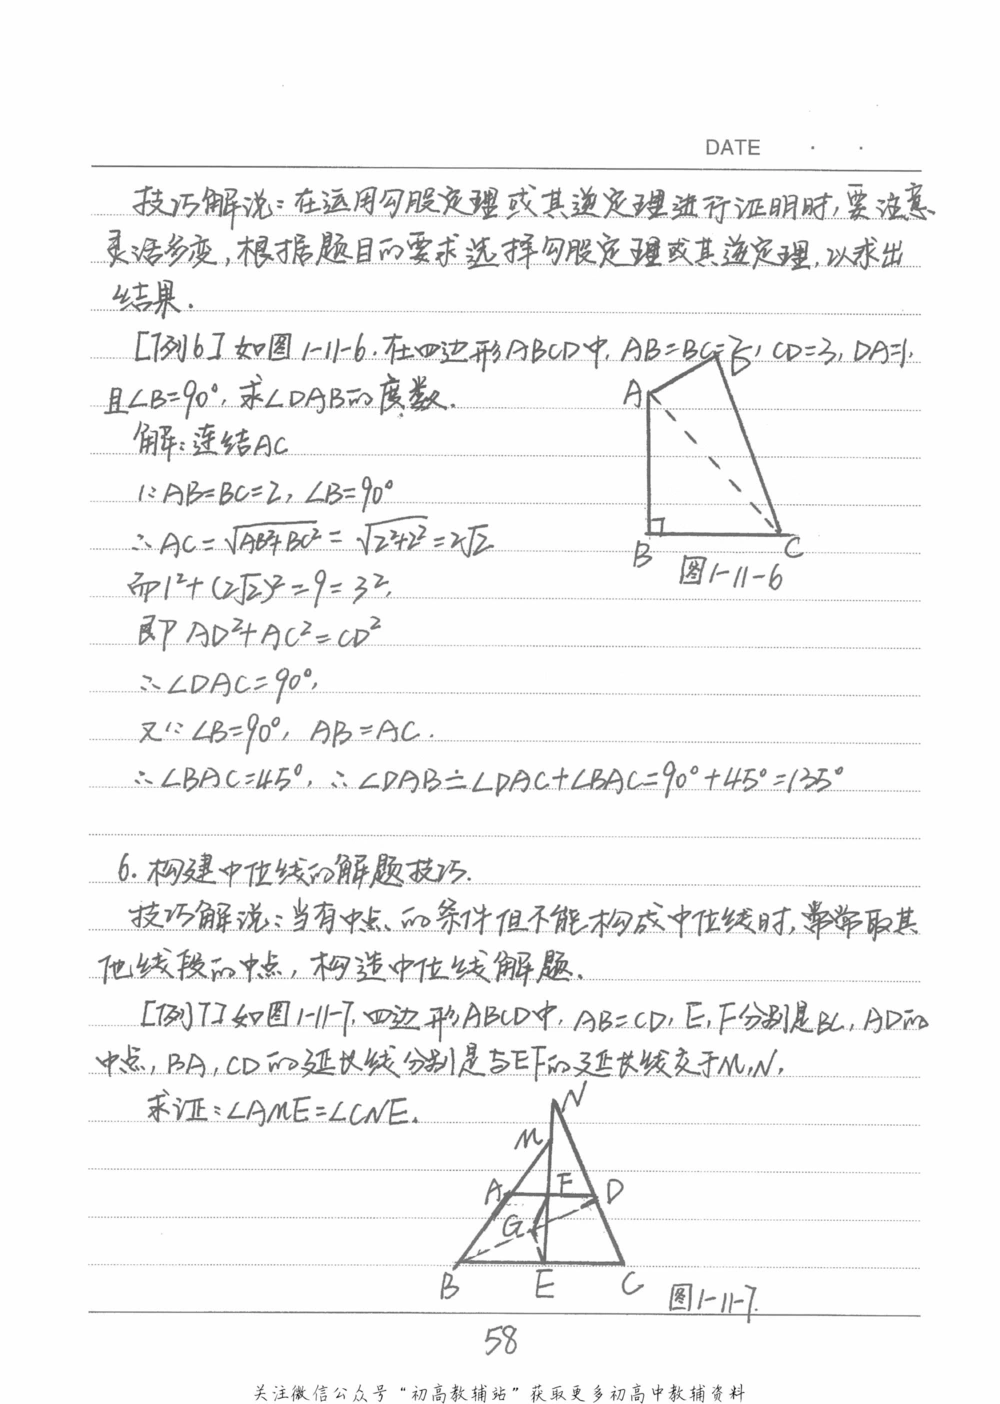 DATE · ·
技巧解说:在运用勾股定理或其逆定理进行证明时,要注意
灵活多变,根据题目的要求选择勾股定理或其逆定理,以求出
结果.
[例6] 如图1-11-6.在四边形ABCD中, AB=BC=2, CD=3, DA=1,
且∠B=90°, 求∠DAB的度数.
解:连结AC
∵AB=BC=2, ∠B=90°
∴AC=√(AB²+BC²)=√(2²+2²)=2√2
而1²+(2√2)²=9=3²,
即AD²+AC²=CD²
∴∠DAC=90°,
又∵∠B=90°, AB=AC.
∴∠BAC=45°, ∴∠DAB=∠DAC+∠BAC=90°+45°=135°
A
D
B
C
图1-11-6
6.构建中位线的解题技巧.
技巧解说:当有中点的条件但不能构成中位线时,常常取其
他线段的中点,构造中位线解题.
[例7]如图1-11-7,四边形ABCD中, AB=CD, E, F分别是BC, AD的
中点, BA, CD的延长线分别是与EF的延长线交于M,N,
求证:∠AME=∠CNE.
N
M
A F D
G
B E C
图1-11-7.
58
关注微信公众号“初高教辅站”获取更多初高中教辅资料